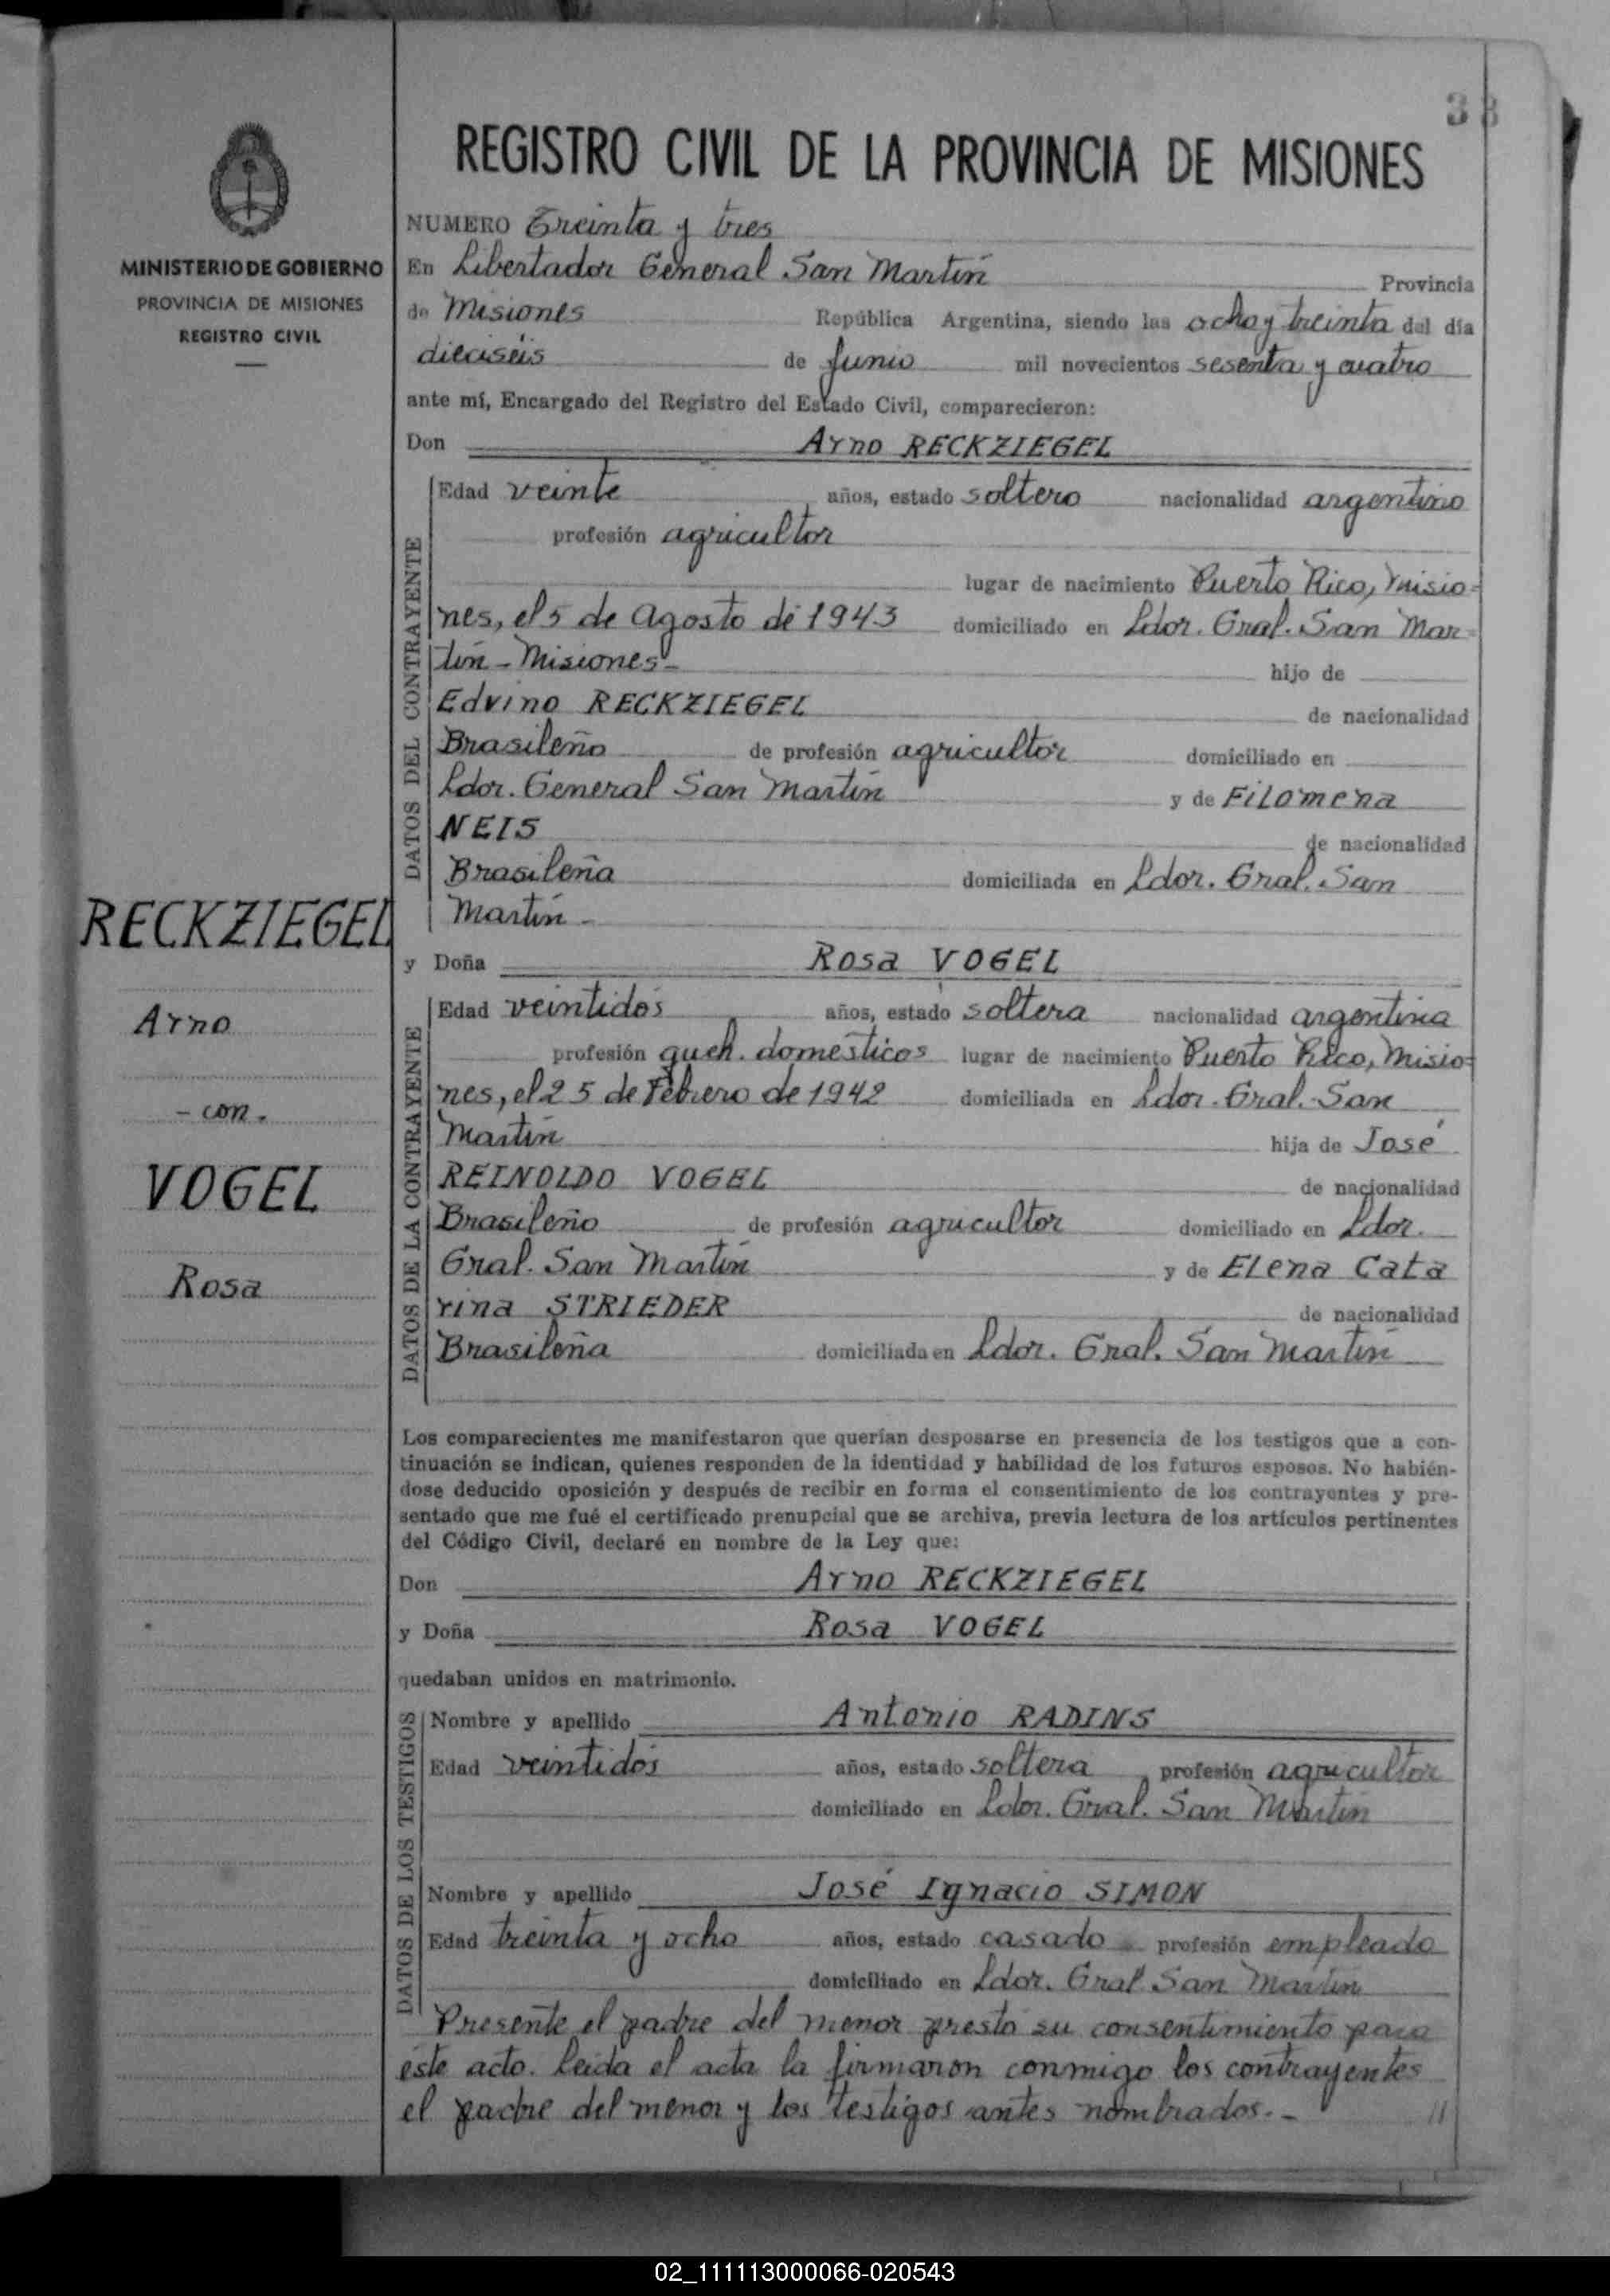 33
REGISTRO CIVIL DE LA PROVINCIA DE MISIONES
MINISTERIO DE GOBIERNO
PROVINCIA DE MISIONES
REGISTRO CIVIL
RECKZIEGEL
Arno
- con.
VOGEL
Rosa
NUMERO Treinta y tres
En Libertador General San Martín Provincia
de Misiones República Argentina, siendo las ocho y treinta del día
dieciséis de Junio mil novecientos sesenta y cuatro
ante mí, Encargado del Registro del Estado Civil, comparecieron:
Don Arno RECKZIEGEL
DATOS DEL CONTRAYENTE
Edad veinte años, estado soltero nacionalidad argentino
profesión agricultor
lugar de nacimiento Puerto Rico, Misio=
nes, el 5 de Agosto de 1943 domiciliado en Ldor. Gral. San Mar=
tín - Misiones - hijo de
Edvino RECKZIEGEL de nacionalidad
Brasileño de profesión agricultor domiciliado en
Ldor. General San Martín y de Filomena
NEIS de nacionalidad
Brasileña domiciliada en Ldor. Gral. San
Martín -
y Doña Rosa VOGEL
DATOS DE LA CONTRAYENTE
Edad veintidós años, estado soltera nacionalidad argentina
profesión queh. domésticos lugar de nacimiento Puerto Rico, Misio=
nes, el 25 de Febrero de 1942 domiciliada en Ldor. Gral. San
Martín hija de José
REINOLDO VOGEL de nacionalidad
Brasileño de profesión agricultor domiciliado en Ldor.
Gral. San Martín y de Elena Cata
rina STRIEDER de nacionalidad
Brasileña domiciliada en Ldor. Gral. San Martín
Los comparecientes me manifestaron que querían desposarse en presencia de los testigos que a con-
tinuación se indican, quienes responden de la identidad y habilidad de los futuros esposos. No habién-
dose deducido oposición y después de recibir en forma el consentimiento de los contrayentes y pre-
sentado que me fué el certificado prenupcial que se archiva, previa lectura de los artículos pertinentes
del Código Civil, declaré en nombre de la Ley que:
Don Arno RECKZIEGEL
y Doña Rosa VOGEL
quedaban unidos en matrimonio.
DATOS DE LOS TESTIGOS
Nombre y apellido Antonio RADINS
Edad veintidós años, estado soltera profesión agricultor
domiciliado en Ldor. Gral. San Martín
Nombre y apellido José Ignacio SIMON
Edad treinta y ocho años, estado casado profesión empleado
domiciliado en Ldor. Gral San Martín
Presente el padre del menor prestó su consentimiento para
éste acto. Leída el acta la firmaron conmigo los contrayentes
el padre del menor y los testigos antes nombrados.- //
02_111113000066-020543